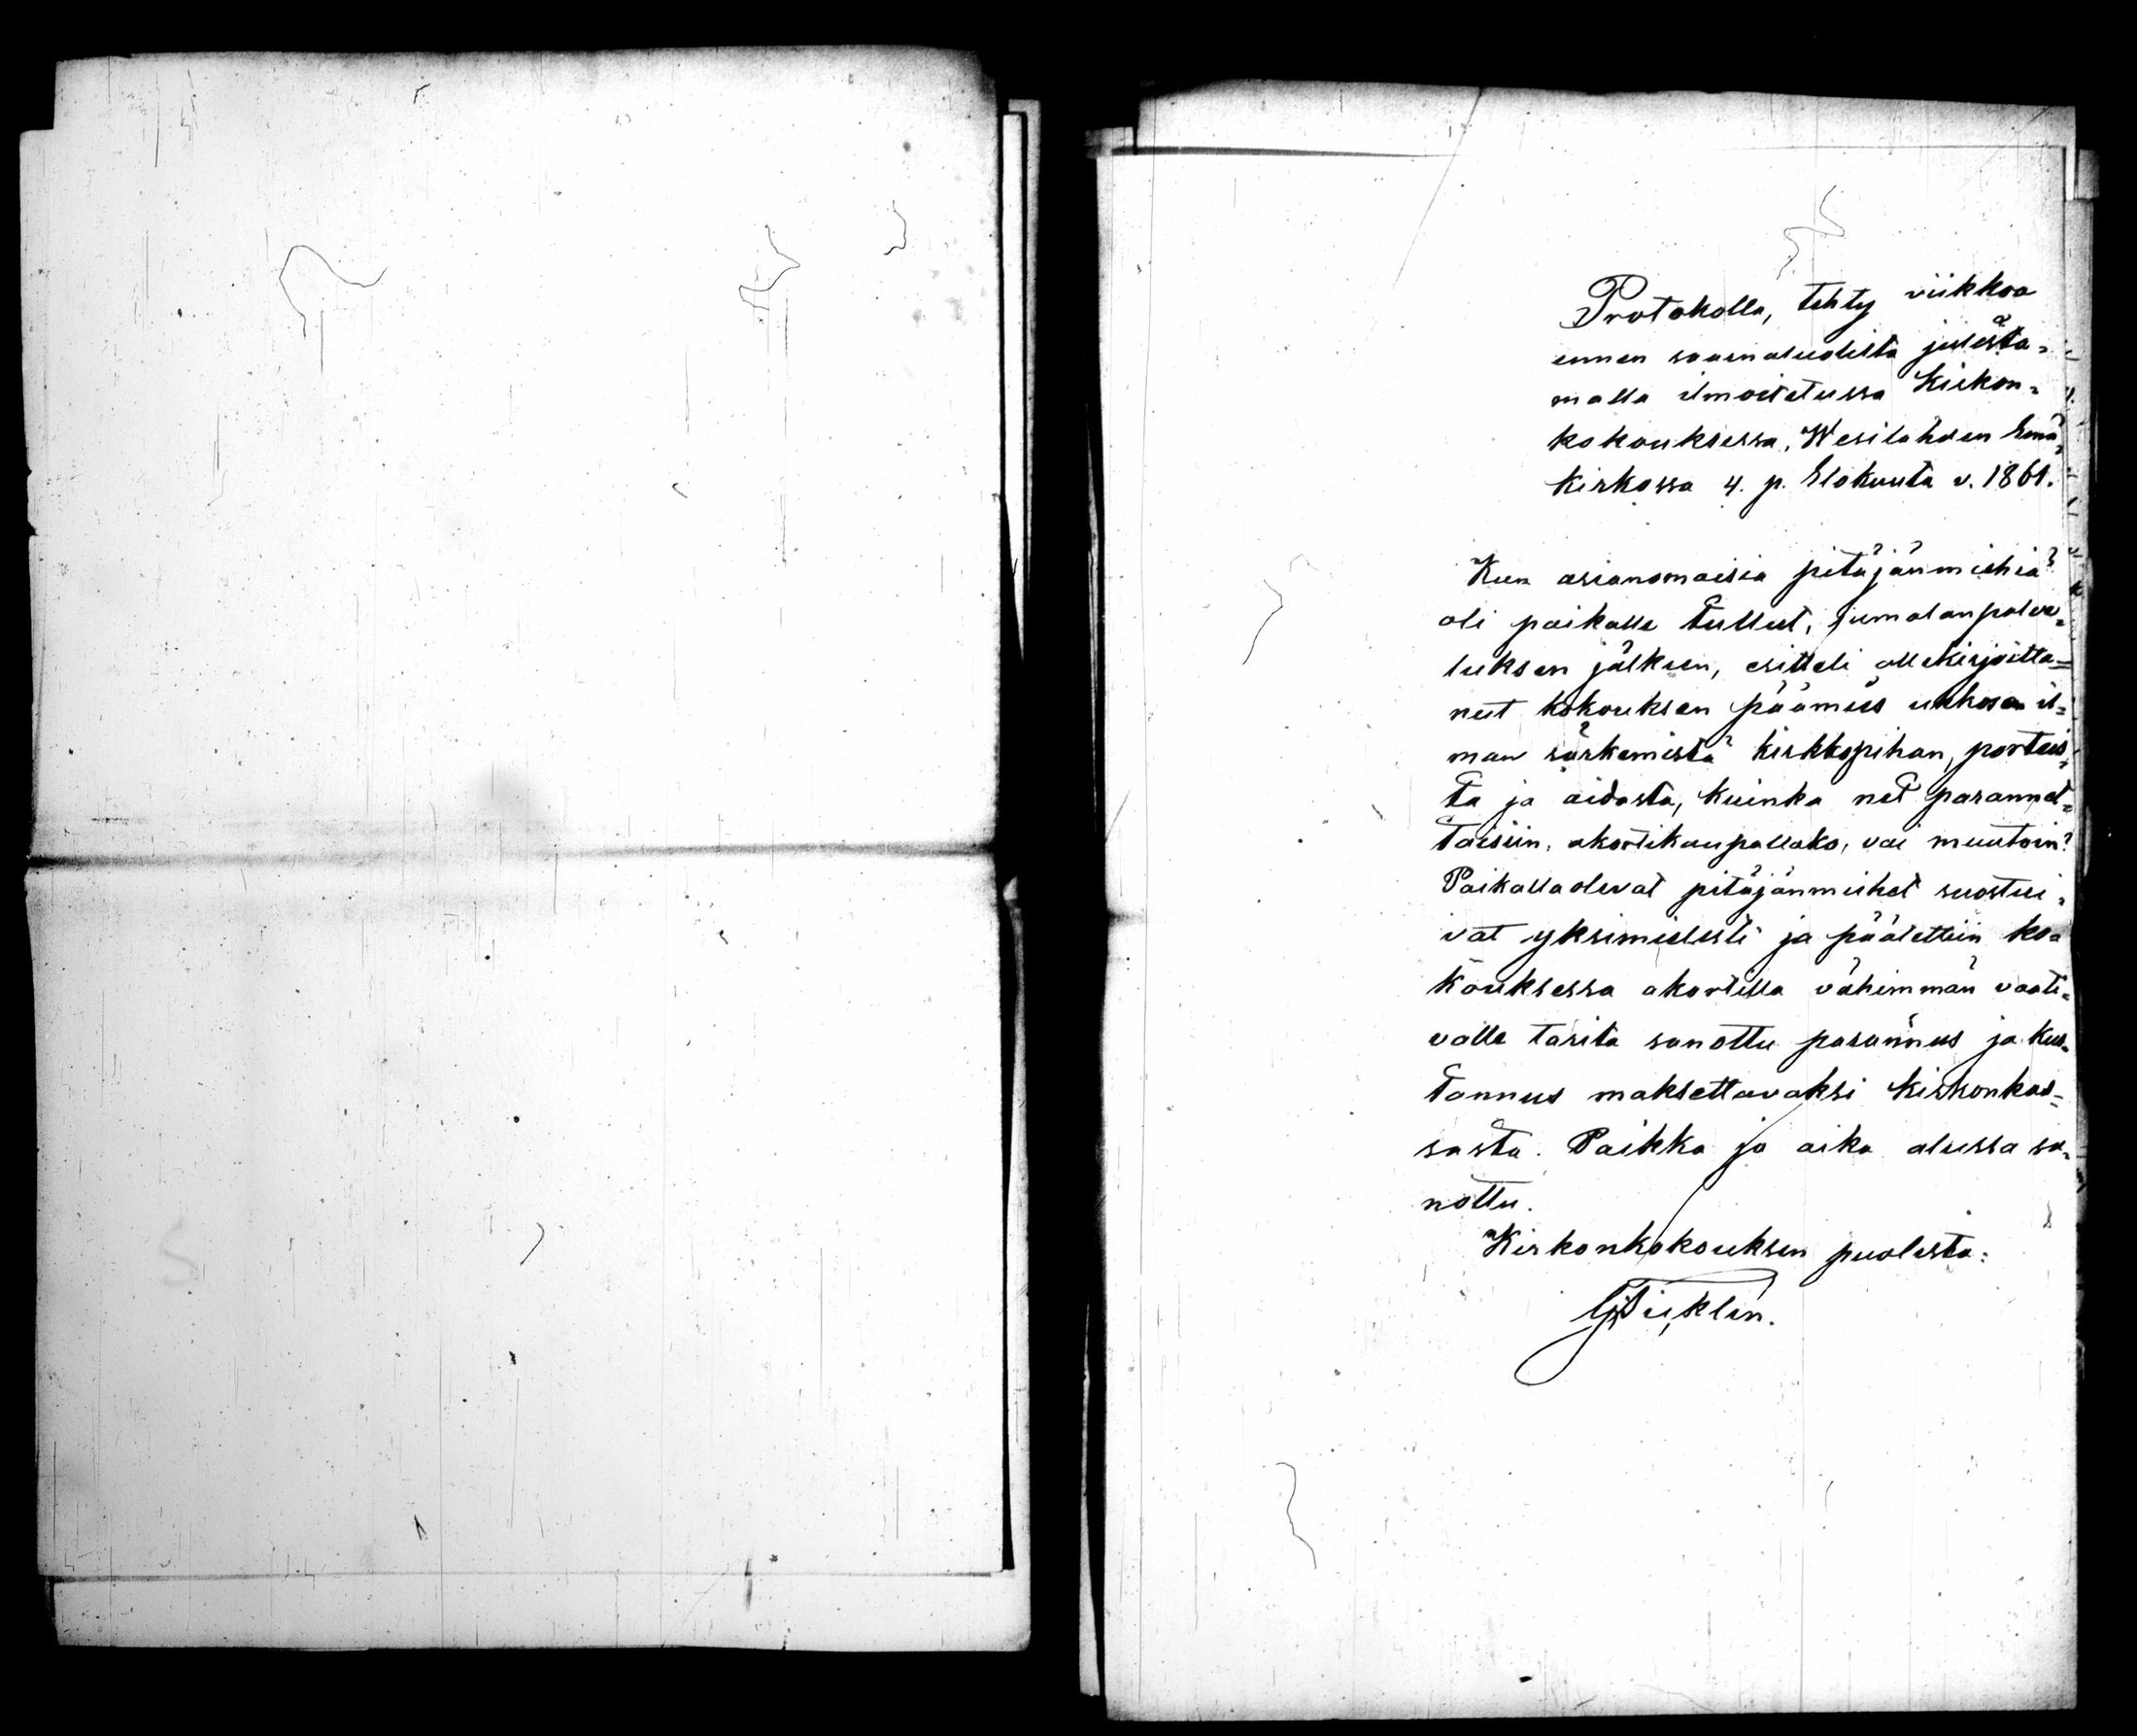 Protokolla, tehty viikkoa
ennen saarnatuolista julista=
malla ilmoitetussa Kirkon=
kokouksessa, Wesilahden Emä=
kirkossa 4. p. Elokuuta v. 1861.
Kun asianomaisia pitäjänmiehiä
oli paikalle tullut, Jumalanpalve=
luksen jälkeen, esitteli allekirjoitta=
nut kokouksen päämies uhkaa il=
man särkemistä kirkkopihan, portis=
ta ja aidasta, kuinka net parannet=
taisiin, akortikaupallako, vai muutoin?
Paikallaolevat pitäjänmiehet suostui=
vat yksimielisesti ja päätettiin ko=
kouksessa akortilla vähimmän vaati=
valle tarita sanottu parannus ja kus=
tannus maksettavaksi kirkonkas=
sasta. Paikka ja aika alussa sa=
nottu.
Kirkonkokouksen puolesta: